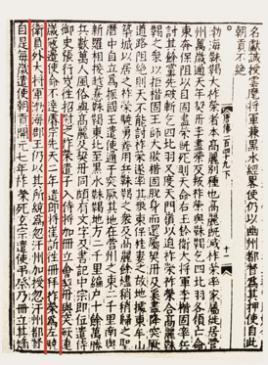 名獻誠授雲麾將軍兼黑水經略使仍以幽州都督爲其押使自此
朝貢不絕
渤海靺鞨大祚榮者本高麗別種也高麗旣滅祚榮率家屬徙居營
州萬歲通天年契丹李盡榮反叛祚榮與靺鞨乞四比羽各領亡命
東奔保阻以自固盡榮旣死則天命右玉鈐衛大將軍李楷固率兵
討其餘黨先破斬乞四比羽又度天門嶺以迫祚榮祚榮合高麗靺
鞨之衆以拒楷固王師大敗楷固脫身而還屬契丹及奚盡降突厥
道路阻絕則天不能討祚榮遂率其衆東保桂婁之故地據東牟山
唐傳一百四十九下
十一
築城以居之祚榮驍勇善用兵靺鞨之衆及高麗餘燼稍稍歸之聖
曆中自立爲振國王遣使通于突厥其地在營州之東二千里南與
新羅相接越憙靺鞨東北至黑水靺鞨地方二千里編戶十餘萬勝
兵數萬人風俗與高麗及契丹同頗有文字及書記中宗即位遣侍
御史張行岌往招慰之祚榮遣子入侍將加冊立會契丹與突厥連
歲寇邊使命不達睿宗先天二年遣郎將崔訢往冊拜祚榮爲左驍
衛員外大將軍渤海郡王仍以其所統爲忽汗州加授忽汗州都督
自是每歲遣使朝貢開元七年祚榮死玄宗遣使弔祭乃冊立其嫡